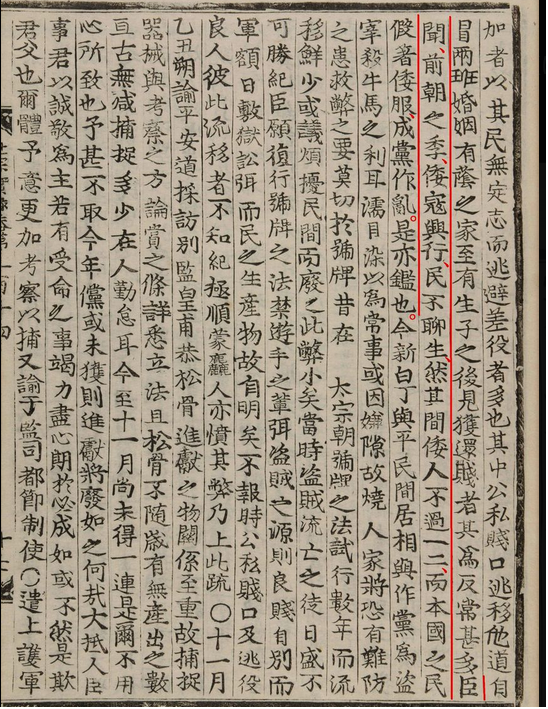 加者以其民無定志而逃避差役者多也其中公私賤口逃移他道自
冒兩班婚姻有蔭之家至有生子之後見獲還賤者其爲反常甚多臣
聞前朝之季倭寇興行民不聊生然其間倭人不過一二而本國之民
假著倭服成黨作亂是亦鑑也今新白丁與平民間居相與作黨爲盜
宰殺牛馬之利耳濡目染以爲常事或因嫌隙故燒 人家將恐有難防
之患救弊之要莫切於號牌昔在 太宗朝號牌之法試行數年而流
移鮮少或議煩擾民間而廢之此弊小矣當時盜賊流亡之徒日盛不
可勝紀臣願復行號牌之法禁遊手之輩弭盜賊之源則良賤自別而
軍額日敷獄訟弭而民之生産物故自明矣不報時公私賤口及逃役
良人彼此流移者不知紀極順蒙麤人亦憤其弊乃上此疏○十一月
乙丑朔諭平安道採訪別監皇甫恭松骨進獻之物關係至重故捕捉
器械與考察之方論賞之條詳悉立法且松骨不隨歲有無產出之數
亘古無减捕捉多少在人勤怠耳今至十一月尚未得一連是爾不用
心所致也予甚不取今年儻或未獲則進獻將廢如之何㢤大抵人臣
事君以誠敬爲主若有受命之事竭力盡心期於必成如或不然是欺
君父也爾體予意更加考察以捕又諭于監司都節制使○遣上護軍